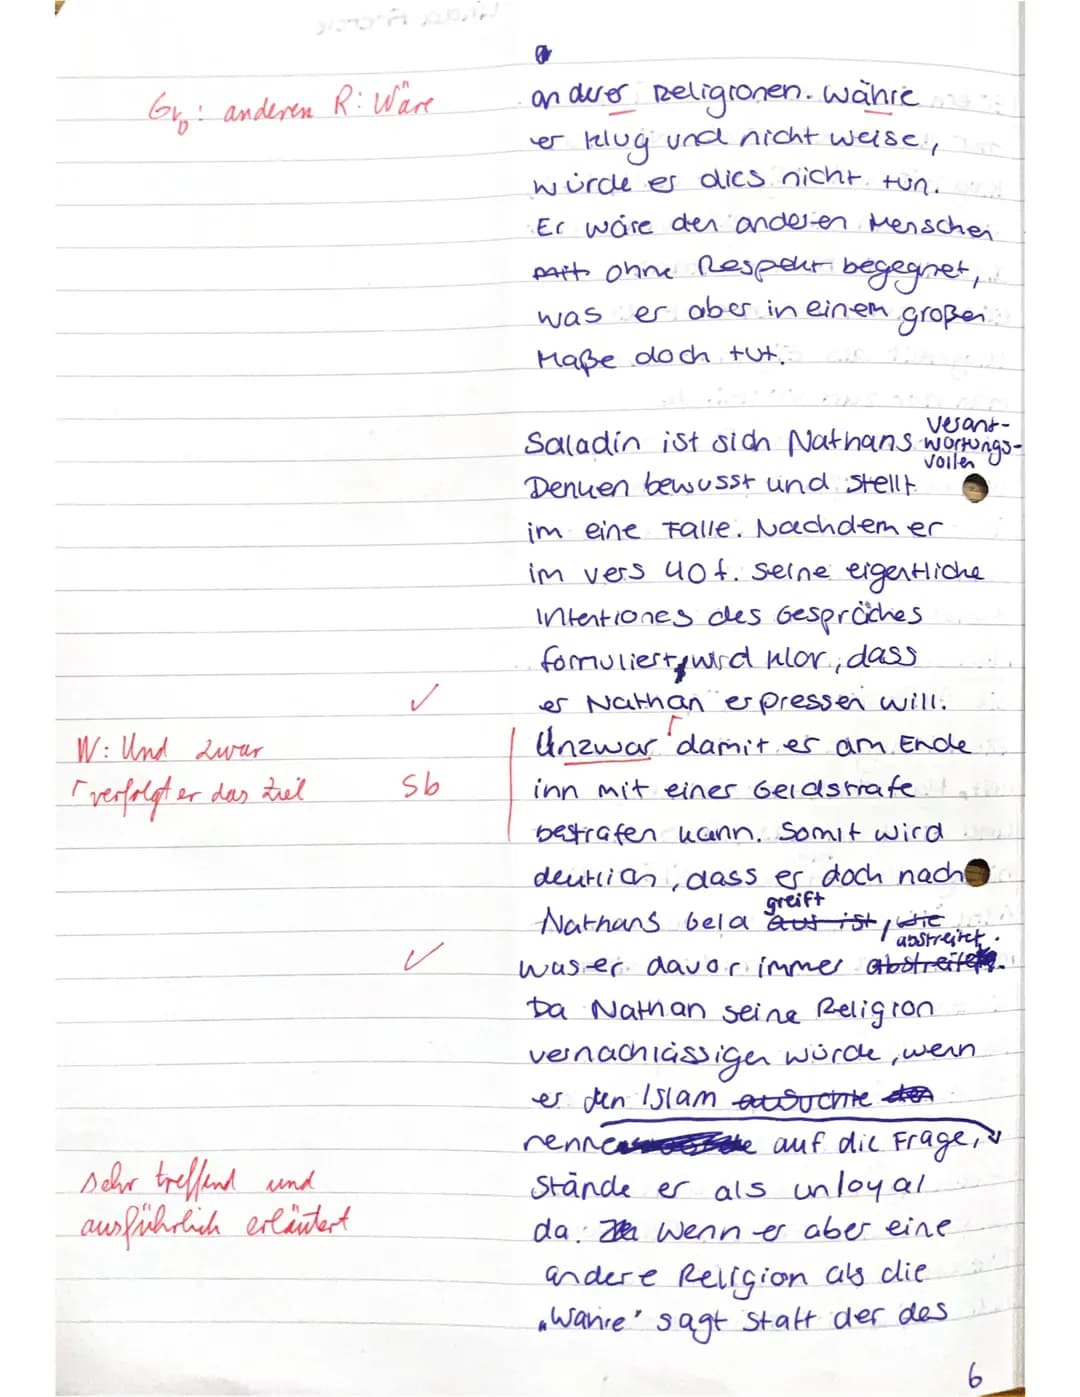 Gr: anderen R: Wäre
anderer Religionen. währe
er klug und nicht weise,
würde er dies nicht tun.
Er wäre den anderen Menschen
mit ohne Respekt begegnet,
was er aber in einem großen
Maße doch tut.
Saladin ist sich Nathans verant-wortungs-vollen
Denken bewusst und stellt
im eine Falle. Nachdem er
im vers 40 f. seine eigentliche
Intentiones des Gespräches
fomuliert, wird klar, dass
er Nathan erpressen will.
W: Und zwar
Unzwar damit er am Ende
verfolgt er das Ziel
Sb
inn mit einer Geldstrafe
bestrafen kann. Somit wird
deutlich, dass er doch nach
greift
Nathans Geld aus ist, wie
abstreitet.
was er davor immer abstreitet.
Da Nathan seine Religion
vernachlässigen würde, wenn
er den Islam aussuchte den
nennen auf die Frage,
sehr treffend und
Stände er als unloyal
ausführlich erläutert
da. Wenn er aber eine
andere Religion als die
„Wahre" sagt statt der des
6